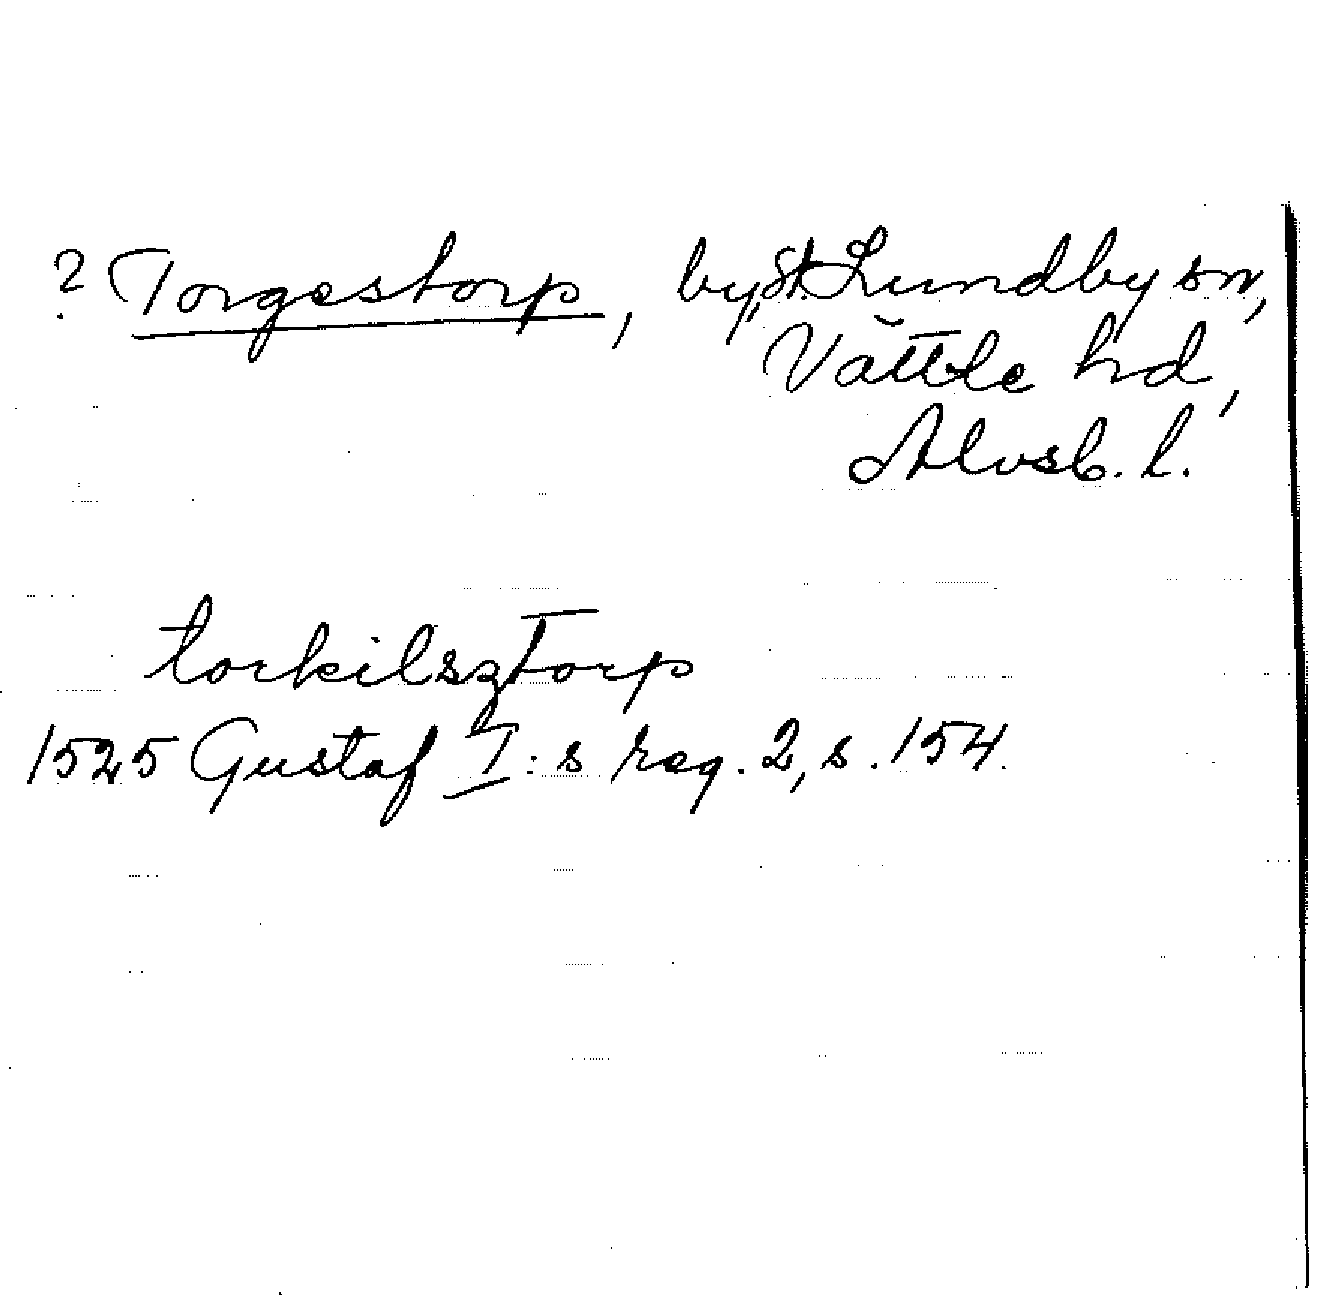 ? Torgestorp, by, St. Lundby sn,
Vättle hd,
Älvsb. l.
torkilsztorp
1525 Gustaf I:s reg. 2, s. 154.